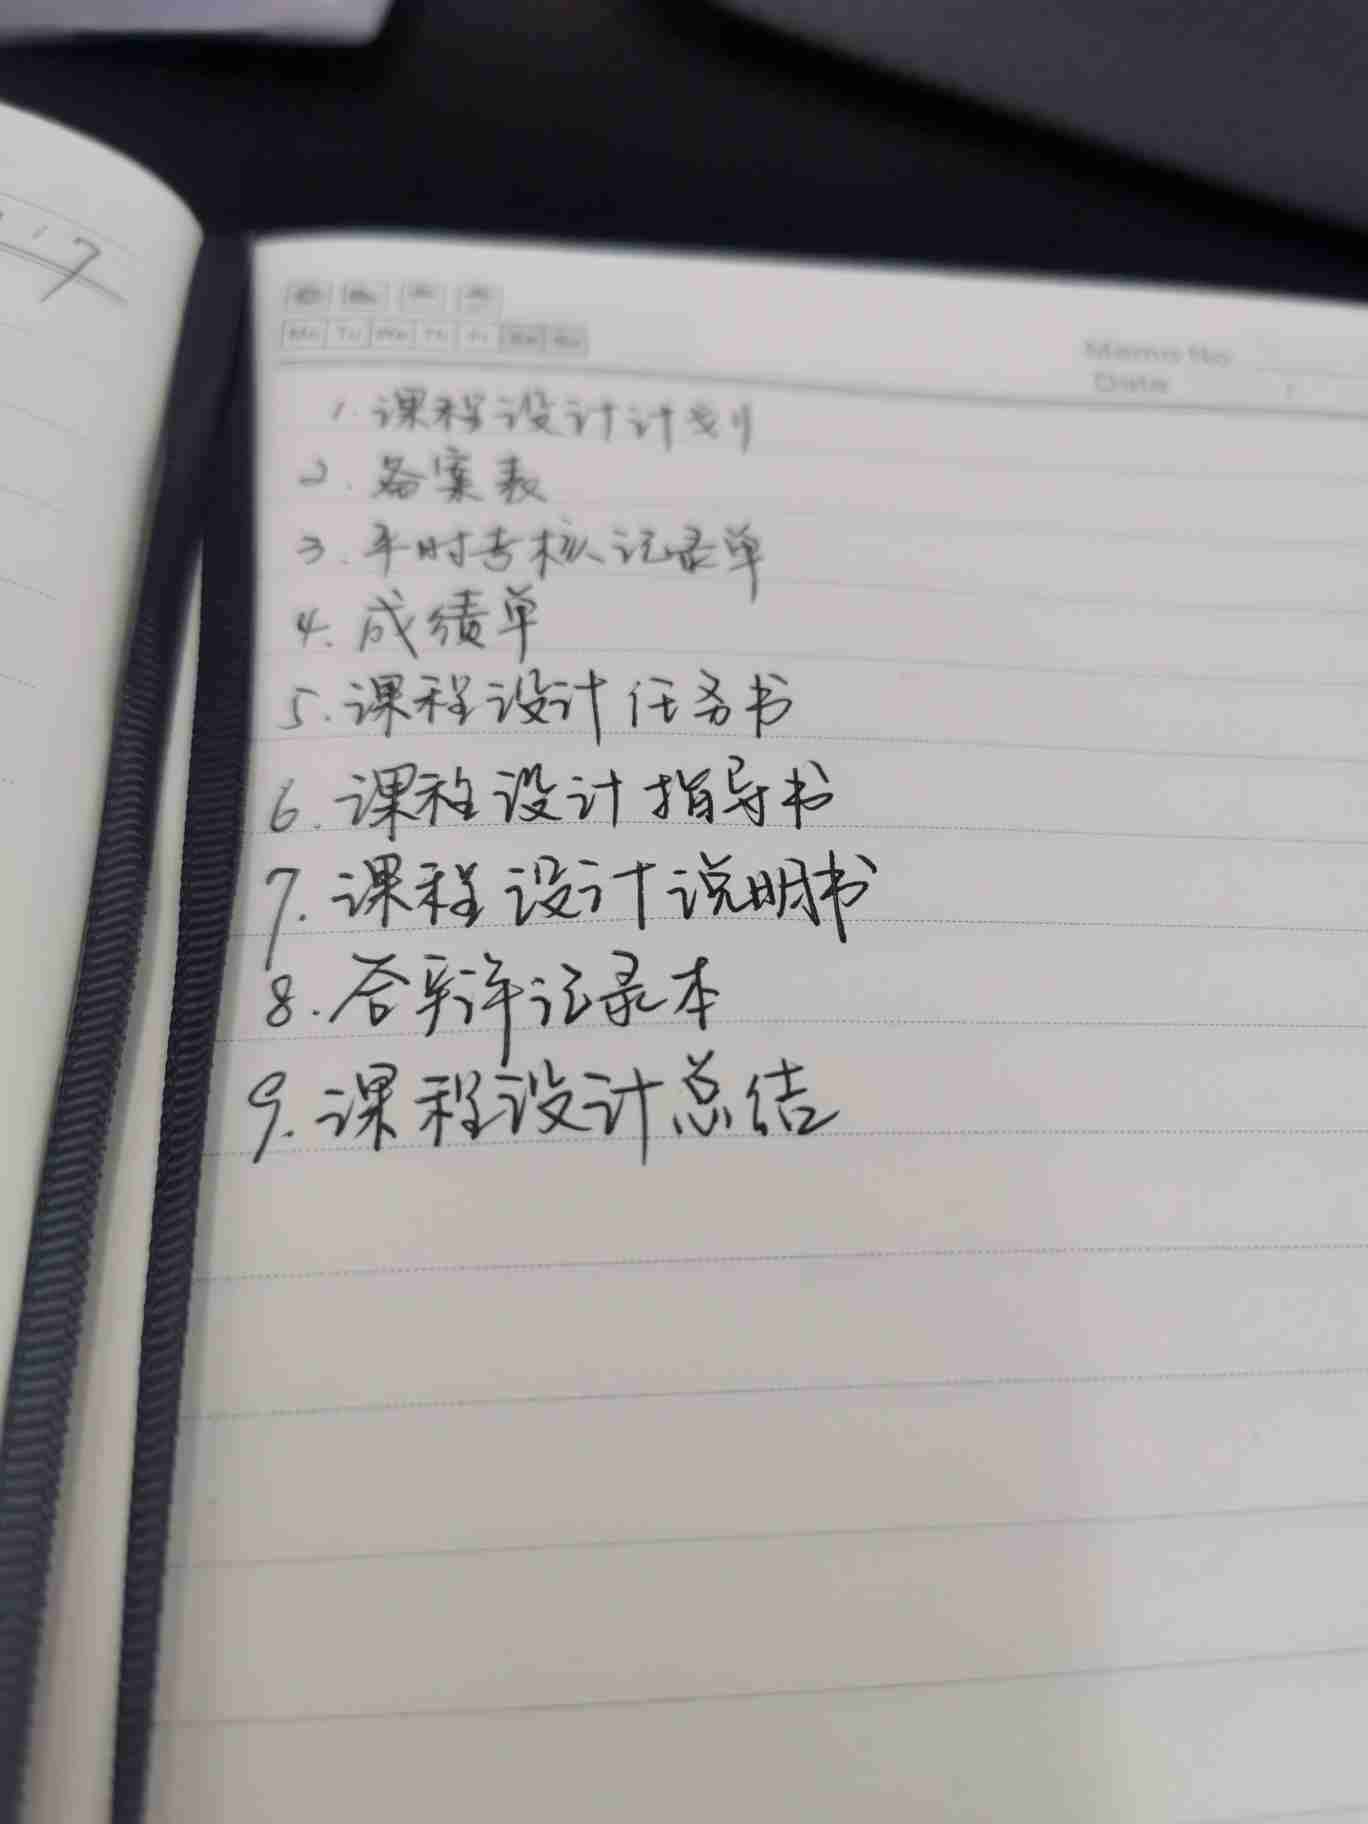 7
Mo Tu We Th Fr Sa Su
Memo No
Date
1. 课程设计计划
2. 备案表
3. 平时考核记录单
4. 成绩单
5. 课程设计任务书
6. 课程设计指导书
7. 课程设计说明书
8. 答辩记录本
9. 课程设计总结